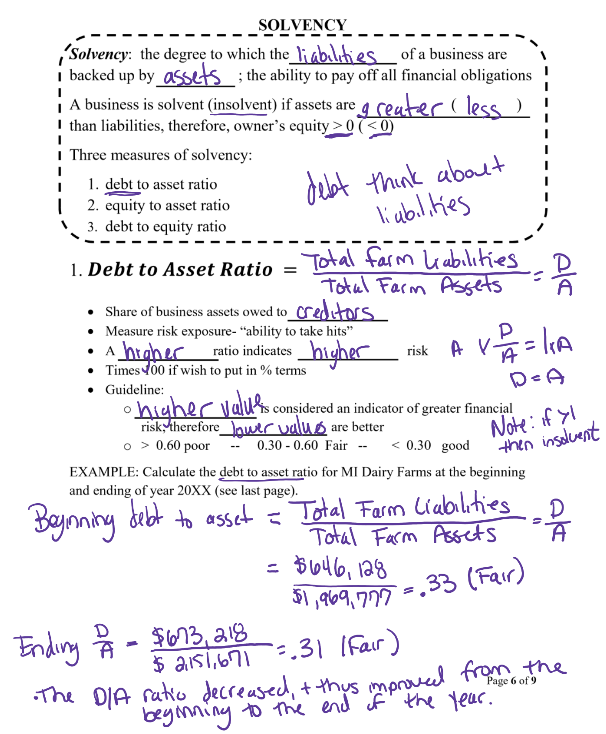 SOLVENCY
Solvency: the degree to which the liabilities of a business are
backed up by assets ; the ability to pay off all financial obligations
A business is solvent (insolvent) if assets are greater ( less )
than liabilities, therefore, owner's equity > 0 ( < 0)
Three measures of solvency:
1. debt to asset ratio
2. equity to asset ratio
3. debt to equity ratio
debt think about
liabilities
1. Debt to Asset Ratio = Total farm Liabilities / Total Farm Assets = D/A
• Share of business assets owed to creditors
• Measure risk exposure- "ability to take hits"
• A higher ratio indicates higher risk
• Times 100 if wish to put in % terms
A V D/A = 1 x A
D = A
• Guideline:
o higher value is considered an indicator of greater financial
risk, therefore lower values are better
o > 0.60 poor -- 0.30 - 0.60 Fair -- < 0.30 good
Note: if >1
then insolvent
EXAMPLE: Calculate the debt to asset ratio for MI Dairy Farms at the beginning
and ending of year 20XX (see last page).
Beginning debt to asset = Total Farm Liabilities / Total Farm Assets = D/A
= $646,128 / $1,969,777 = .33 (Fair)
Ending D/A = $673,218 / $2,151,671 = .31 (Fair)
• The D/A ratio decreased, + thus improved from the
beginning to the end of the year.
Page 6 of 9